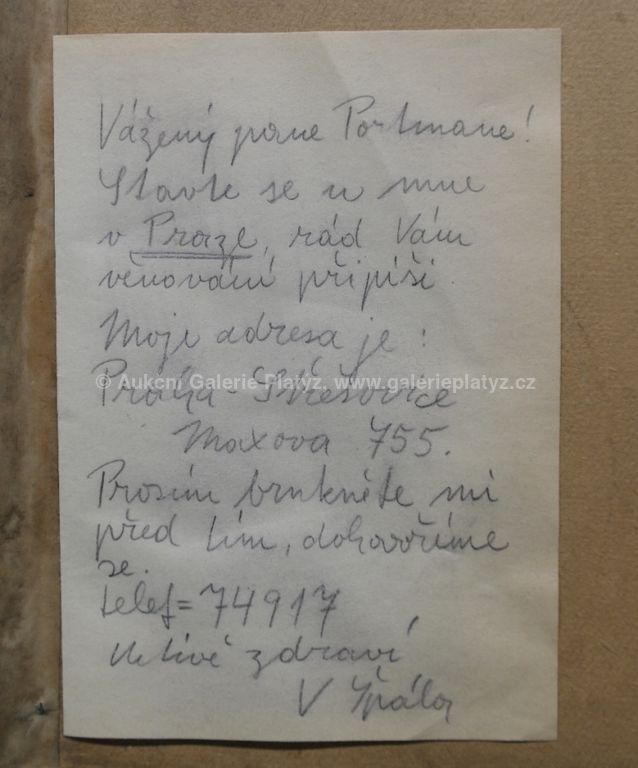 Vážený pane Portmane!
Stavte se u mne
v Praze, rád Vám
věnování připíši.
Moje adresa je:
© Aukční Galerie Platýz, www.galerieplatyz.cz
Praha-Střešovice
Maxova 755.
Prosím brnkněte mi
před tím, dohovoříme
se.
telef=74917
Uctivě zdraví,
V Špála